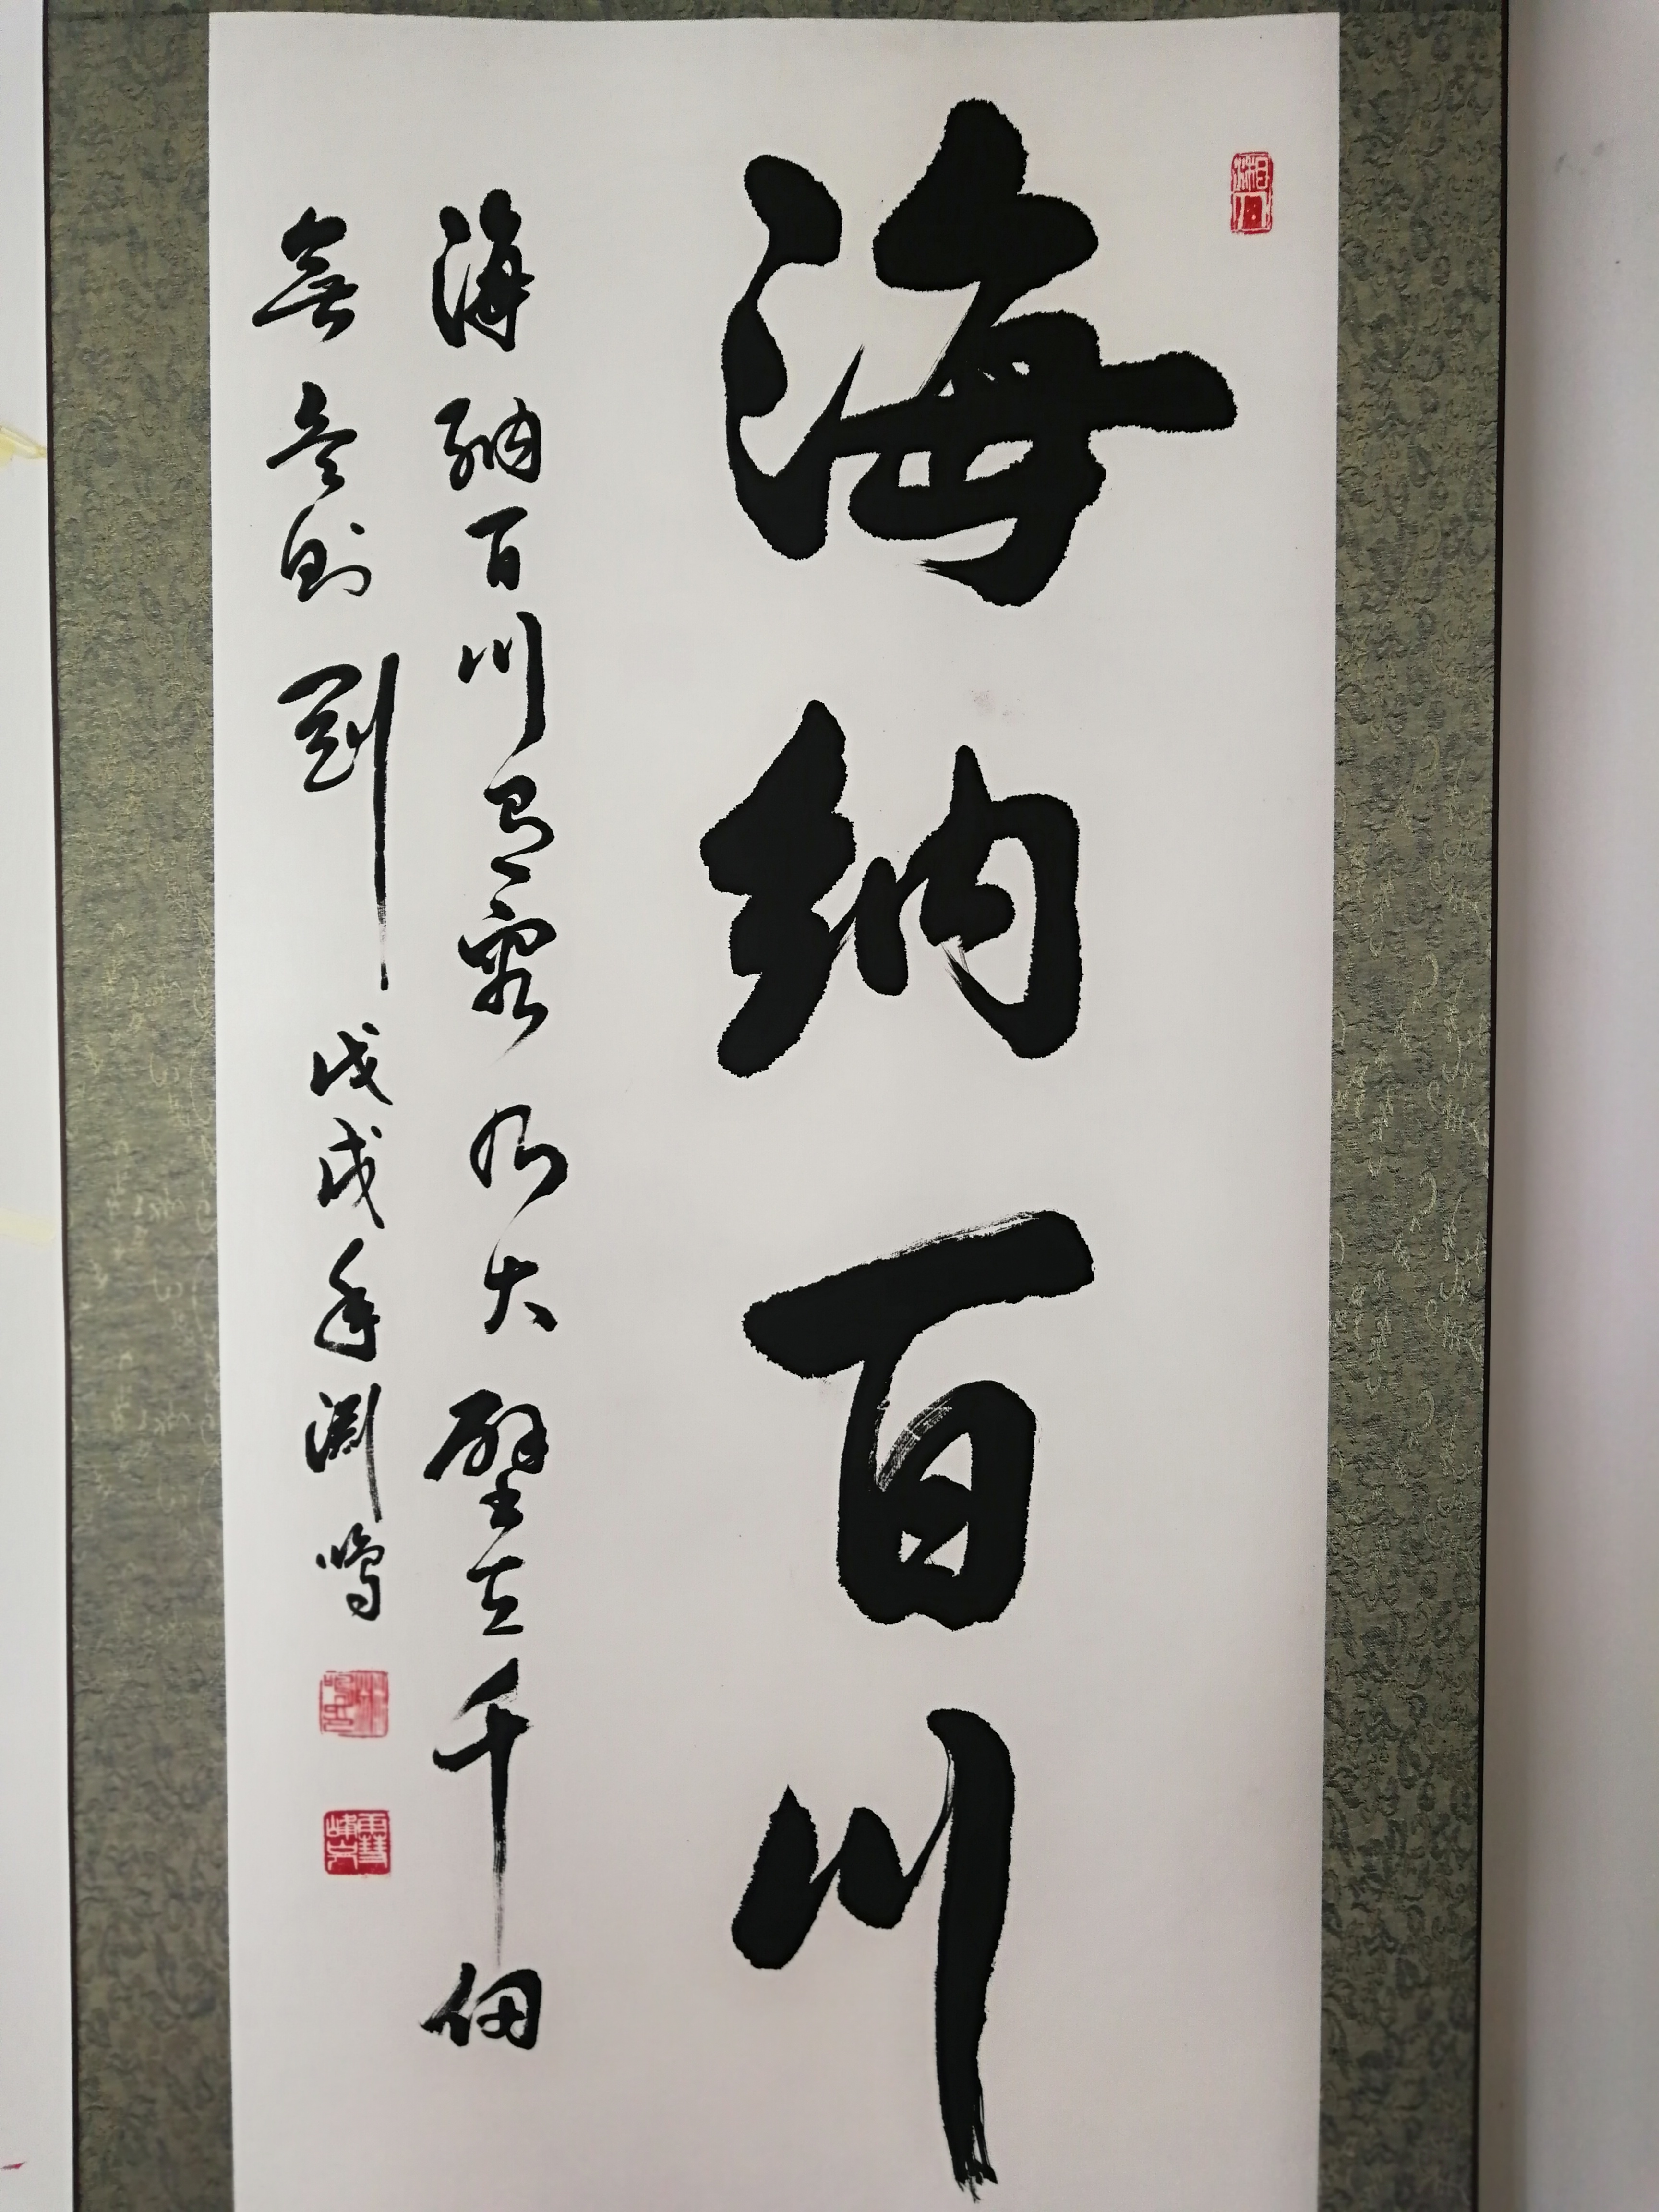 海納百川
海納百川有容乃大壁立千仞
無欲則剛 戊戌年淵鳴